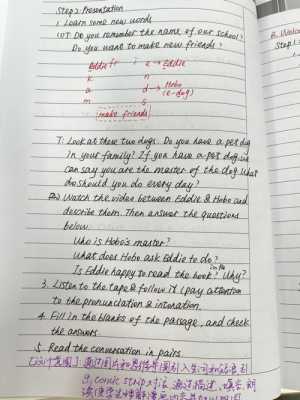 Step 2 Presentation
1. Learn some new words
(1) T: Do you remember the name of our school?
Do you want to make new friends?
Eddie fr i e → Eddie
k n
a d → Hobo
(e-dog)
m s
make friends
T: Look at these two dogs. Do you have a pet dog
in your family? If you have a pet dog, we
can say you are the master of the dog. What
should you do every day?
(2) Watch the video between Eddie & Hobo and
describe them. Then answer the questions
below.
Who is Hobo's master?
What does Hobo ask Eddie to do?
Is Eddie happy to read the book? Why?
3. Listen to the tape & follow it (pay attention
to the pronunciation & intonation.
4. Fill in the blanks of the passage, and check
the answers.
5. Read the conversation in pairs.
[设计意图]: 通过图片和思维导图引入生词和语言
comic strip 通过描述, 填空, 朗
Step 1.